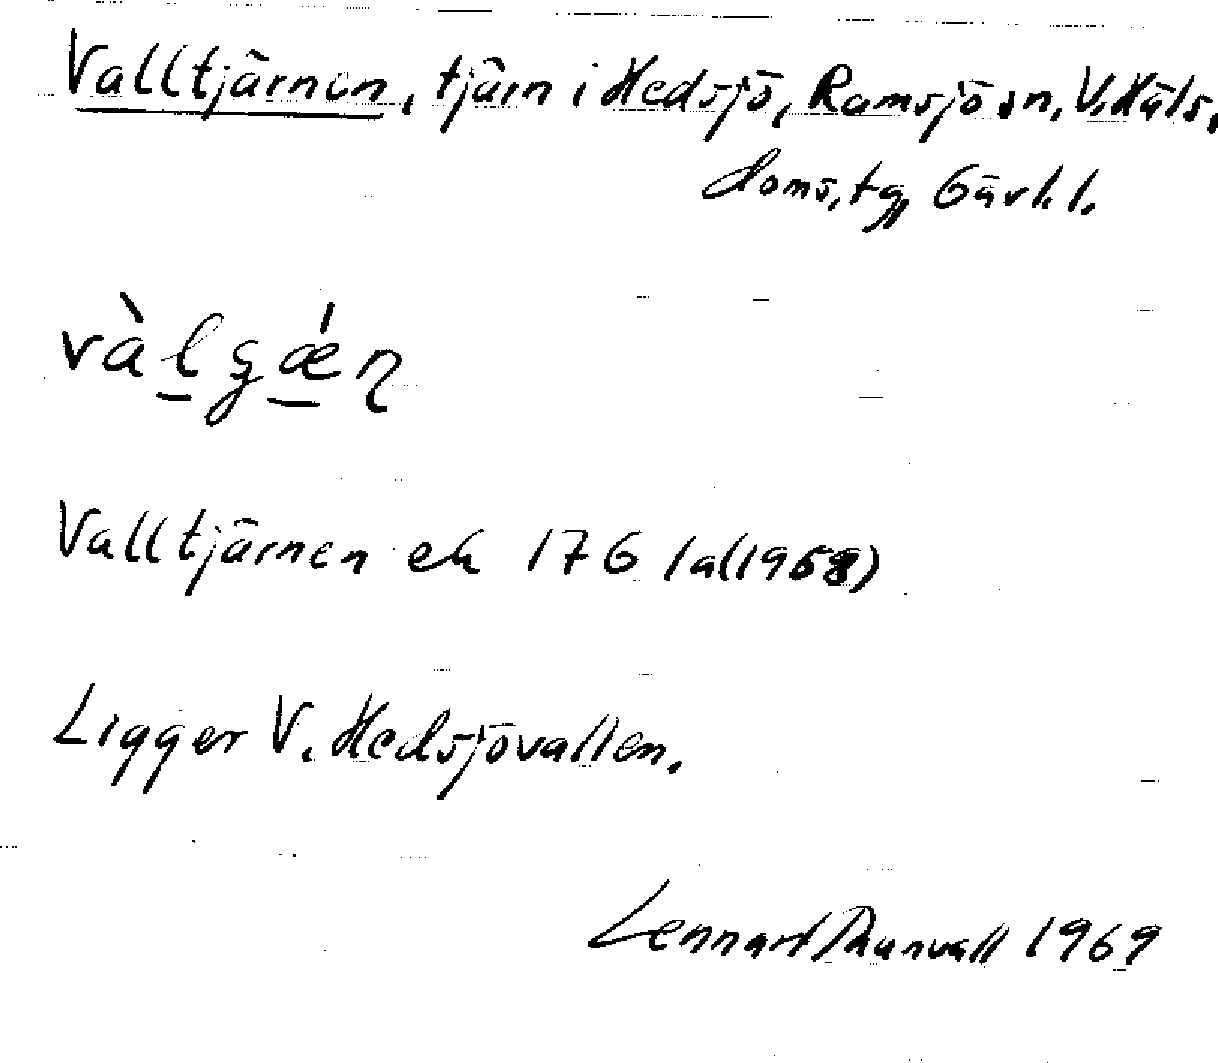 Valltjärnen, tjärn i Hedsjö, Ramsjö sn, V. Häls.
Doms.tg, Gävl. l.
Valltjärnen ek 176 1a(1958)
Ligger V. Hedsjövallen.
Lennart Thunvall 1969